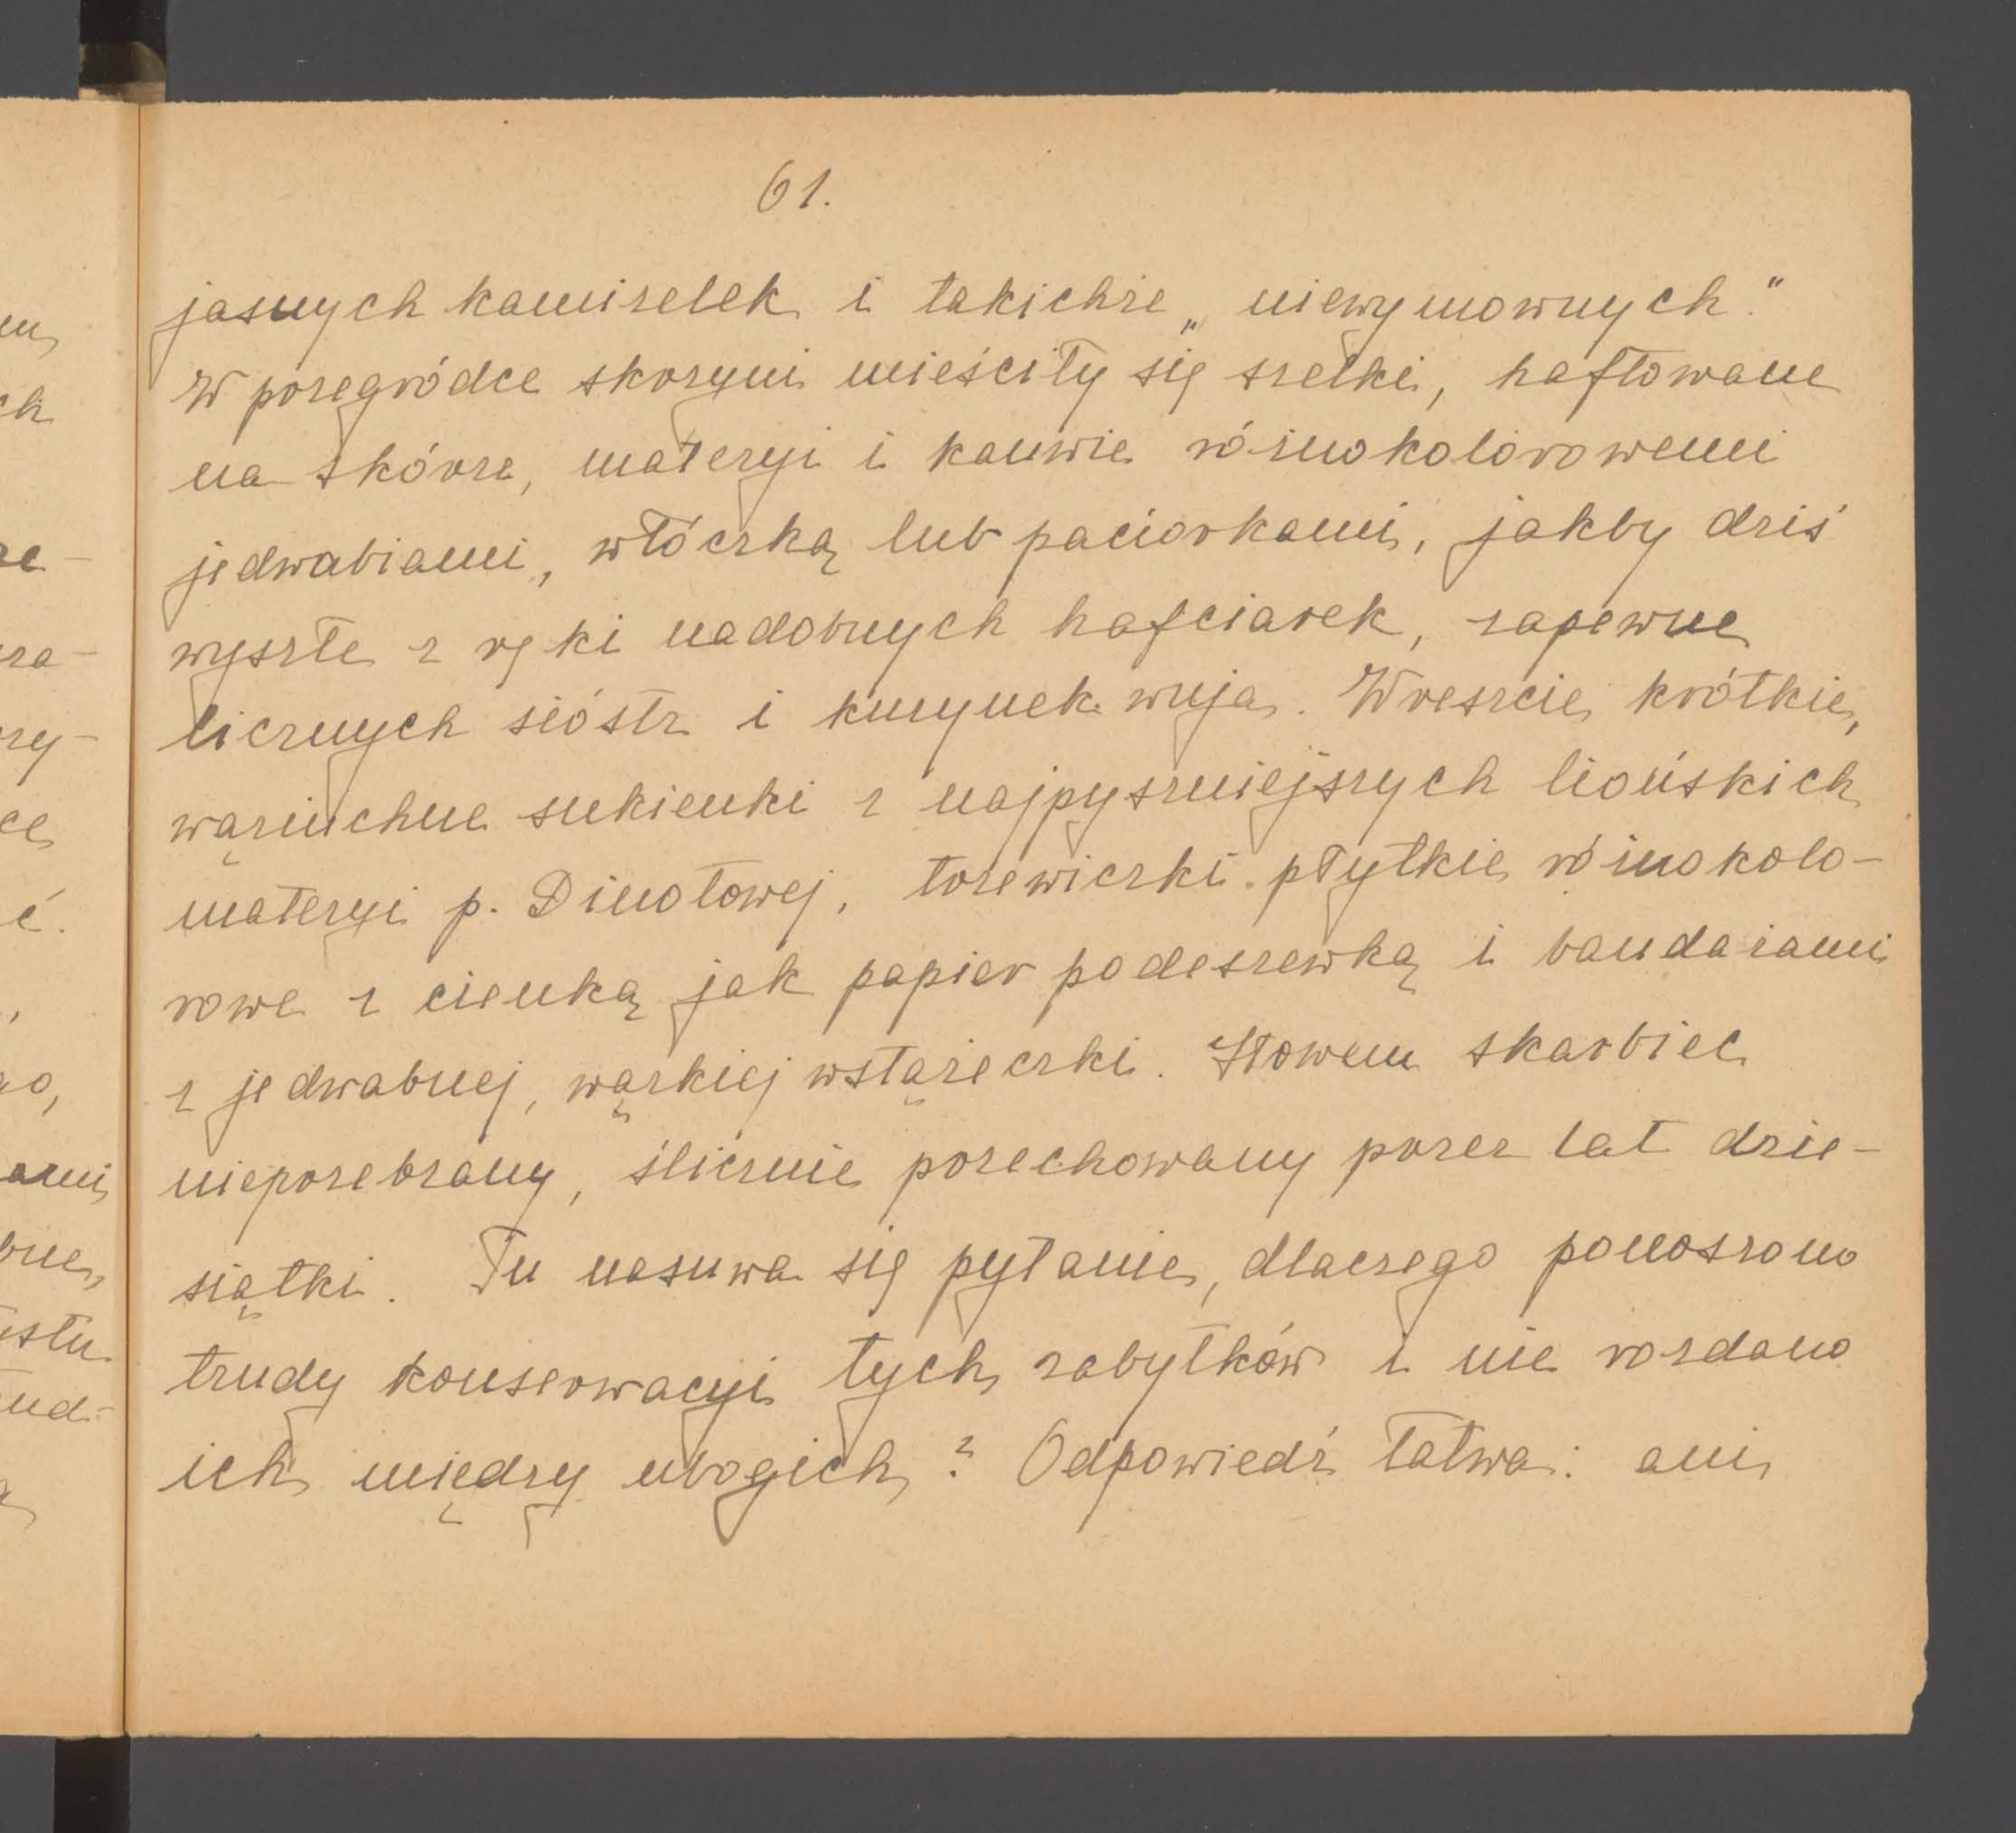 61.
jasnych kamizelek i takichże „niewymownych."
W przegródce skrzyni mieściły się szelki, haftowane
na skórze, materyi i kanwie różnokolorowemi
jedwabiami, włóczką lub paciorkami, jakby dziś
wyszłe z ręki nadobnych hafciarek, zapewne
licznych sióstr i kuzynek wuja. Wreszcie krótkie,
wąziuchne sukienki z najpyszniejszych liońskich
materyi p. Dinotowej, trzewiczki płytkie różnokolo-
rowe z cienką jak papier podeszewką i bandażami
z jedwabnej, wązkiej wstążeczki. Słowem skarbiec
nieprzebrany, ślicznie przechowany przez lat dzie-
siątki. Tu nasuwa się pytanie, dlaczego ponoszono
trudy konserwacyi tych zabytków i nie rozdano
ich między ubogich? Odpowiedź łatwa: ani